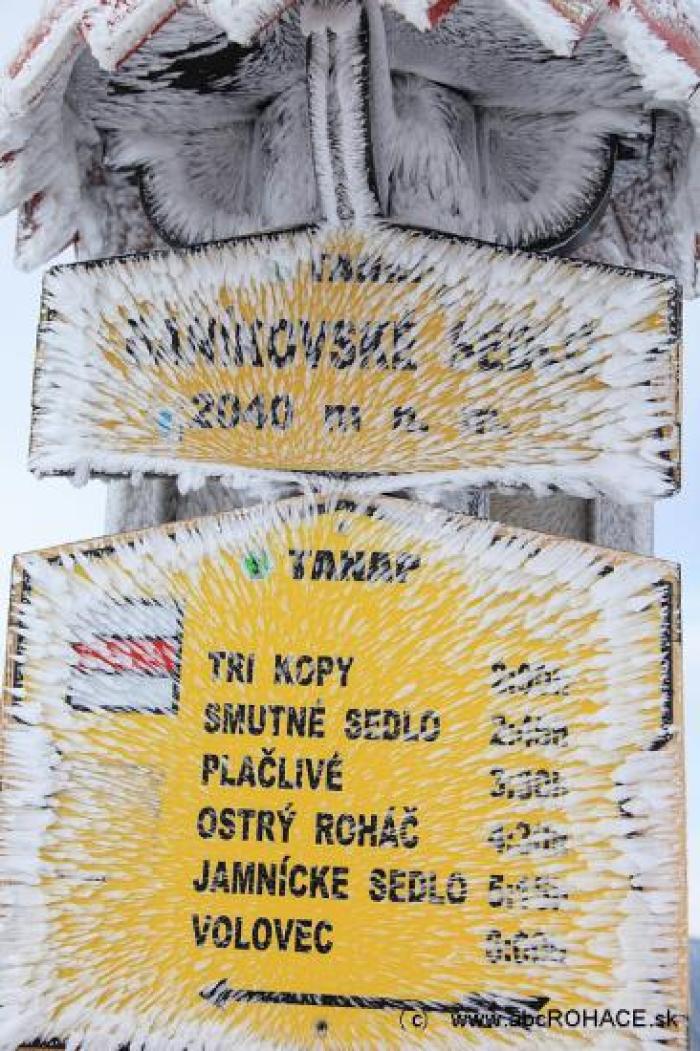 TANAP
SEDLO
2040 m n. m.
TANAP
TRI KOPY
SMUTNÉ SEDLO 2:45h
PLAČLIVÉ
OSTRÝ ROHÁČ
JAMNÍCKE SEDLO 5:15h
VOLOVEC
© www.abcROHACE.sk